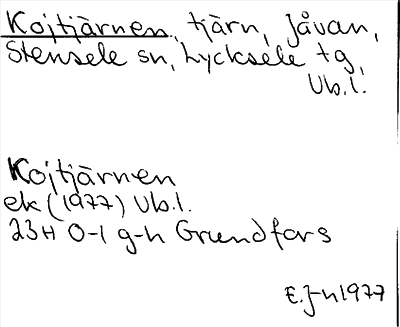 Kojtjärnen, tjärn, Jåvan,
Stensele sn, Lycksele tg,
Vb.l.
Kojtjärnen
ek (1977) Vb.l.
23H 0-1 g-h Grundfors
E.J-n 1977